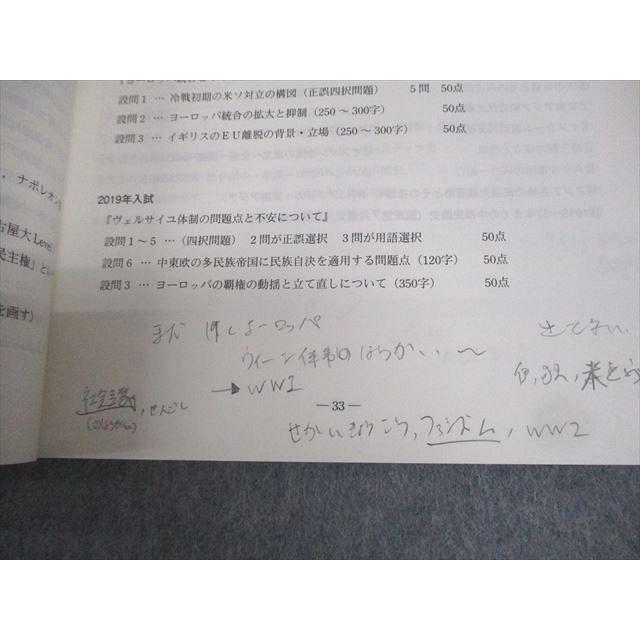 設問1 … 冷戦初期の米ソ対立の構図（正誤四択問題） 5問 50点
設問2 … ヨーロッパ統合の拡大と抑制（250～300字） 50点
設問3 … イギリスのEU離脱の背景・立場（250～300字） 50点
2019年入試
『ヴェルサイユ体制の問題点と不安について』
設問1～5 … （四択問題） 2問が正誤選択 3問が用語選択 50点
設問6 … 中東欧の多民族帝国に民族自決を適用する問題点（120字） 50点
設問3 … ヨーロッパの覇権の動揺と立て直しについて（350字） 50点
，ナポレオン
古屋大Level
民主権」とい
を画す）
まだ ヨーロッパ
ウィーン体制のほうか、、～
→ WW1
出てない
せんごし
―33―
せかいきょうこう，ファシズム，WW2